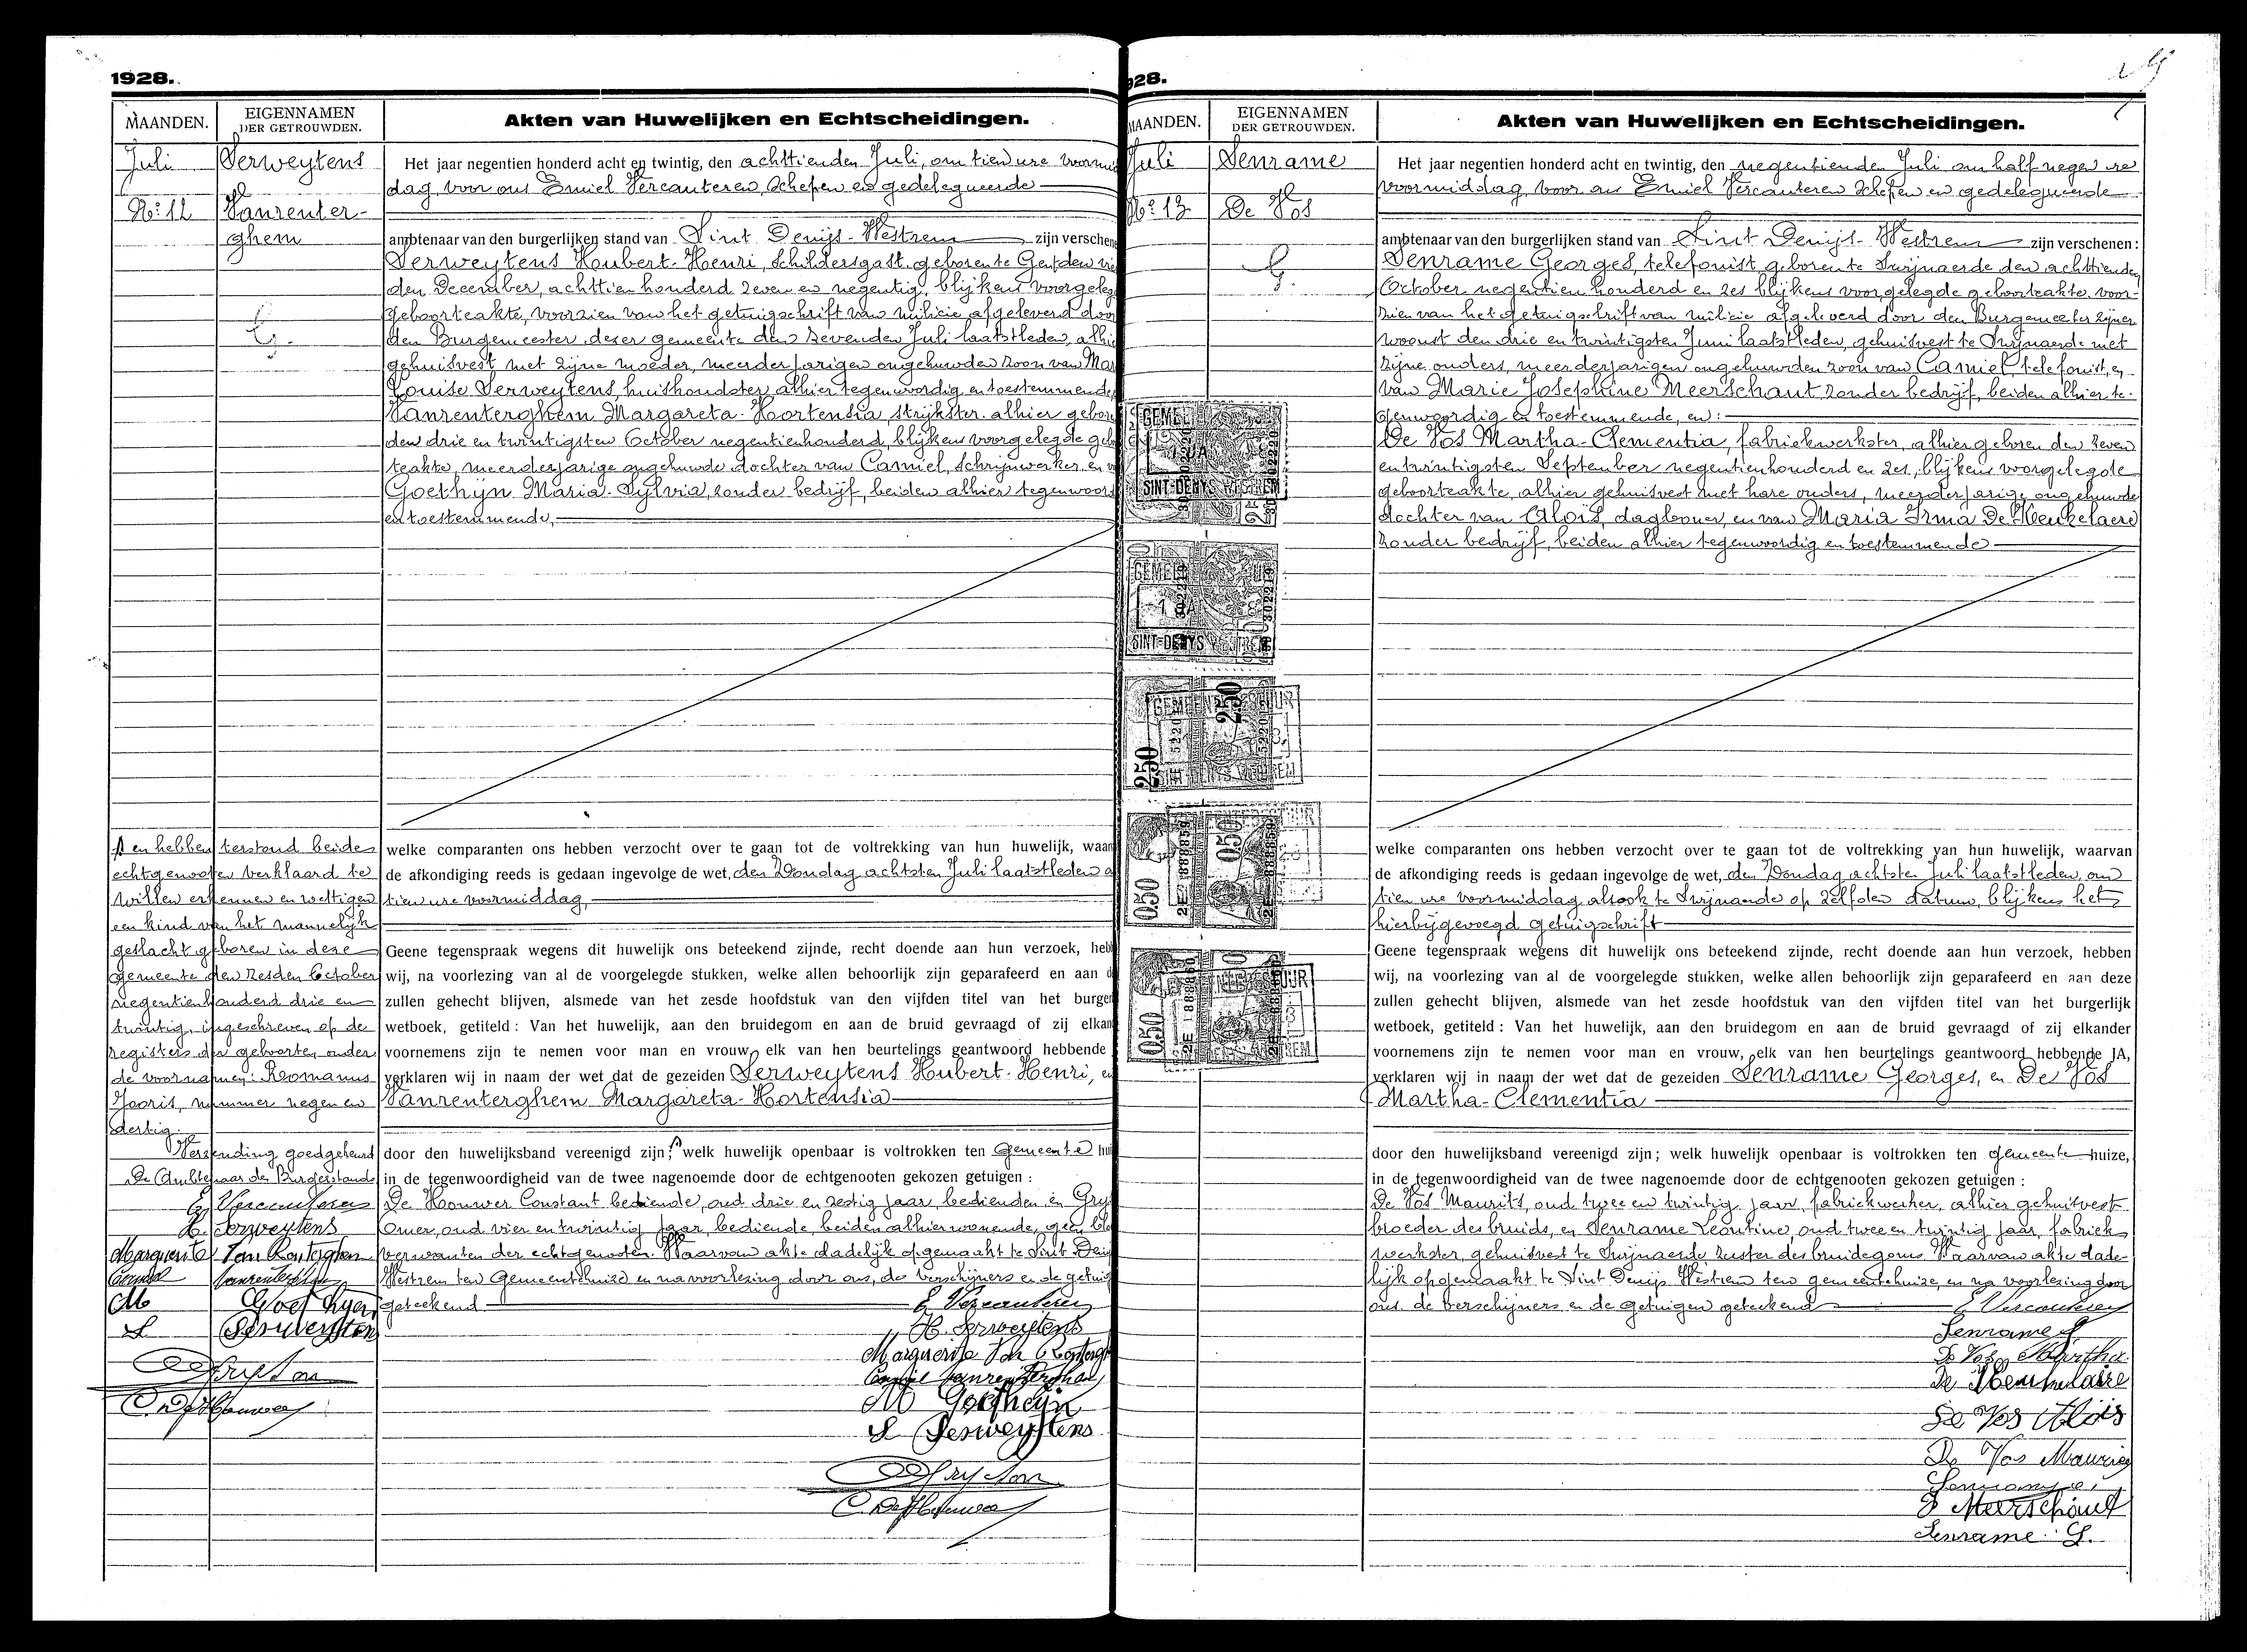 1928.
MAANDEN.
EIGENNAMEN
DER GETROUWDEN.
Akten van Huwelijken en Echtscheidingen.
Juli
Serweytens
No: 12
Vanrenter-
ghem
G.
Het jaar negentien honderd acht en twintig, den achttienden Juli, om tien ure voormid
dag, voor ons Emiel Vercauteren, Schepen en gedelegueerde
ambtenaar van den burgerlijken stand van Sint Denijs-Westrem zijn verschene
Serweytens Houbert-Henri, Schildersgast, geboren te Gent den vie
den December, achttien honderd zeven en negentig, blijkens voorgeleg
geboorteakte, voorzien van het getuigschrift van milicie afgeleverd door
den Burgemeester dezer gemeente den zevenden Juli laatstleden, alhie
gehuisvest met zijne moeder, meerderjarigen ongehuwden zoon van Mar
Louise Serweytens, huishoudster, alhier tegenwoordig en toestemmende
Vanrenterghem Margareta-Hortensia, strijkster, alhier gebore
den drie en twintigsten October negentienhonderd, blijkens voorgelegde geb
teakte, meerderjarige ongehuwde dochter van Camiel, Schrijnwerker, en v
Goethijn Maria-Sylvia, zonder bedrijf, beiden alhier tegenwoord
en toestemmende,
welke comparanten ons hebben verzocht over te gaan tot de voltrekking van hun huwelijk, waar
de afkondiging reeds is gedaan ingevolge de wet, den Zondag achtsten Juli laatstleden o
tien ure voormiddag,
Geene tegenspraak wegens dit huwelijk ons beteekend zijnde, recht doende aan hun verzoek, heb
wij, na voorlezing van al de voorgelegde stukken, welke allen behoorlijk zijn geparafeerd en aan d
zullen gehecht blijven, alsmede van het zesde hoofdstuk van den vijfden titel van het burger
wetboek, getiteld: Van het huwelijk, aan den bruidegom en aan de bruid gevraagd of zij elkan
voornemens zijn te nemen voor man en vrouw, elk van hen beurtelings geantwoord hebbende
verklaren wij in naam der wet dat de gezeiden Serweytens Hubert-Henri, en
Vanrenterghem Margareta-Hortensia
door den huwelijksband vereenigd zijn; welk huwelijk openbaar is voltrokken ten Gemeente hui
in de tegenwoordigheid van de twee nagenoemde door de echtgenooten gekozen getuigen:
De Houwer Constant bediende, oud drie en zestig jaar, bedienden, en Gry
Omer, oud vier en twintig jaar, bediende, beiden alhier wonende, geen blo
verwanten der echtgenooten. Waarvan akte dadelijk opgemaakt te Sint Denij
Westrem ten Gemeentehuize en na voorlezing door ons, de verschijners en de getuig
geteekend
E Vercauteren
H. Serweytens
Marguerite Van Renterg
Camiel Vanrenterghem
M Goethijn
L Serweytens
C. De Houwer
en hebben terstond beide
echtgenooten verklaard te
willen erkennen en wettigen
een kind van het mannelijk
geslacht geboren in deze
gemeente den zesden October
negentienhonderd drie en
twintig, ingeschreven op de
registers der geboorten onder
de voornamen: Romanus
Jooris, nummer negen en
dertig.
Verzending goedgekeurd
De Ambtenaar des Burgerstands
E Vercauteren
H. Serweytens
Marguerite Van Renterghem
Camiel Vanrenterghem
M Goethijn
L Serweytens
C. De Houwer
928.
MAANDEN.
EIGENNAMEN
DER GETROUWDEN.
Akten van Huwelijken en Echtscheidingen.
Juli
Senrame
No: 13
De Vos
G.
Het jaar negentien honderd acht en twintig, den negentienden Juli om half negen ure
voormiddag, voor ons Emiel Vercauteren Schepen en gedelegueerde
ambtenaar van den burgerlijken stand van Sint Denijs-Westrem zijn verschenen:
Senrame Georges, telefonist, geboren te Swijnaerde den achttienden
October negentien honderd en zes blijkens voorgelegde geboorteakte, voor-
zien van het getuigschrift van milicie afgeleverd door den Burgemeester zijner
woonst den drie en twintigsten Juni laatstleden, gehuisvest te Swijnaerde met
zijne ouders, meerderjarigen ongehuwden zoon van Camiel, telefonist, en
van Marie Josephine Meerschaut zonder bedrijf, beiden alhier te-
genwoordig en toestemmende, en:
De Vos Martha-Clementia, fabriekwerkster, alhier geboren den zeven
en twintigsten September negentienhonderd en zes, blijkens voorgelegde
geboorteakte, alhier gehuisvest met hare ouders, meerderjarige ongehuwde
dochter van Aloïs, daglooner, en van Maria Irma De Keukelaere
zonder bedrijf, beiden alhier tegenwoordig en toestemmende
GEMEE
SINT-DENYS WESTREM
GEMEE
SINT-DENYS WESTREM
2.50
2.50
0.50
0.50
0.50
welke comparanten ons hebben verzocht over te gaan tot de voltrekking van hun huwelijk, waarvan
de afkondiging reeds is gedaan ingevolge de wet, den Zondag achtsten Juli laatstleden, om
tien ure voormiddag alsook te Swijnaerde op zelfden datum, blijkens het
hierbijgevoegd getuigschrift
Geene tegenspraak wegens dit huwelijk ons beteekend zijnde, recht doende aan hun verzoek, hebben
wij, na voorlezing van al de voorgelegde stukken, welke allen behoorlijk zijn geparafeerd en aan deze
zullen gehecht blijven, alsmede van het zesde hoofdstuk van den vijfden titel van het burgerlijk
wetboek, getiteld: Van het huwelijk, aan den bruidegom en aan de bruid gevraagd of zij elkander
voornemens zijn te nemen voor man en vrouw, elk van hen beurtelings geantwoord hebbende JA,
verklaren wij in naam der wet dat de gezeiden Senrame Georges, en De Vos
Martha-Clementia
door den huwelijksband vereenigd zijn; welk huwelijk openbaar is voltrokken ten gemeente huize,
in de tegenwoordigheid van de twee nagenoemde door de echtgenooten gekozen getuigen:
De Vos Maurits, oud twee en twintig jaar, fabriekwerker, alhier gehuisvest
broeder des bruids, en Senrame Leontine, oud twee en twintig jaar, fabriek
werkster, gehuisvest te Swijnaerde zuster des bruidegoms. Waarvan akte dade-
lijk opgemaakt te Sint Denijs Westrem ten gemeentehuize, en na voorlezing door
ons, de verschijners en de getuigen geteekend
E Vercauteren
Senrame G
De Vos Martha
De Keukelaere
De Vos Alois
De Vos Maurice
Senrame
Meerschaut
Senrame G.